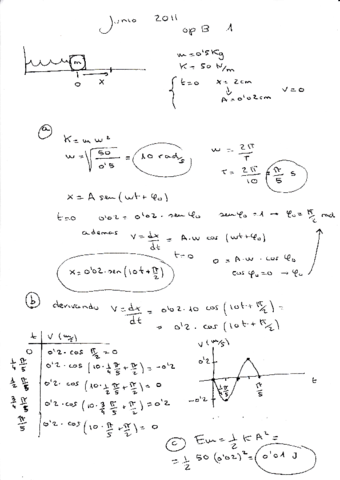 Junio 2011
op B 1
m
0 x
m = 0'5 Kg
K = 50 N/m
t=0 x = 2cm v=0
A = 0'02cm
a
K = m w²
w = √(50/0'5) = 10 rad/s
w = 2π/T
T = 2π/10 = π/5 s
x = A sen (wt + φ₀)
t=0 0'02 = 0'02 · sen φ₀ sen φ₀ = 1 → φ₀ = π/2 rad
ademas v = dx/dt = A·w cos (wt+φ₀)
t=0 0 = A·w · cos φ₀
cos φ₀ = 0 → φ₀
x = 0'02 · sen (10t + π/2)
b derivando v = dx/dt = 0'02·10 cos (10t + π/2) =
= 0'2 · cos (10t + π/2)
t V (m/s)
0 0'2 · cos π/2 = 0
1/4 π/5 0'2 · cos (10 · 1/4 π/5 + π/2) = -0'2
1/2 π/5 0'2 · cos (10 · 1/2 π/5 + π/2) = 0
3/4 π/5 0'2 · cos (10 · 3/4 π/5 + π/2) = 0'2
π/5 0'2 · cos (10 · π/5 + π/2) = 0
V (m/s)
0'2
-0'2
π/5
t
c Em = 1/2 K A² =
= 1/2 50 (0'02)² = 0'01 J